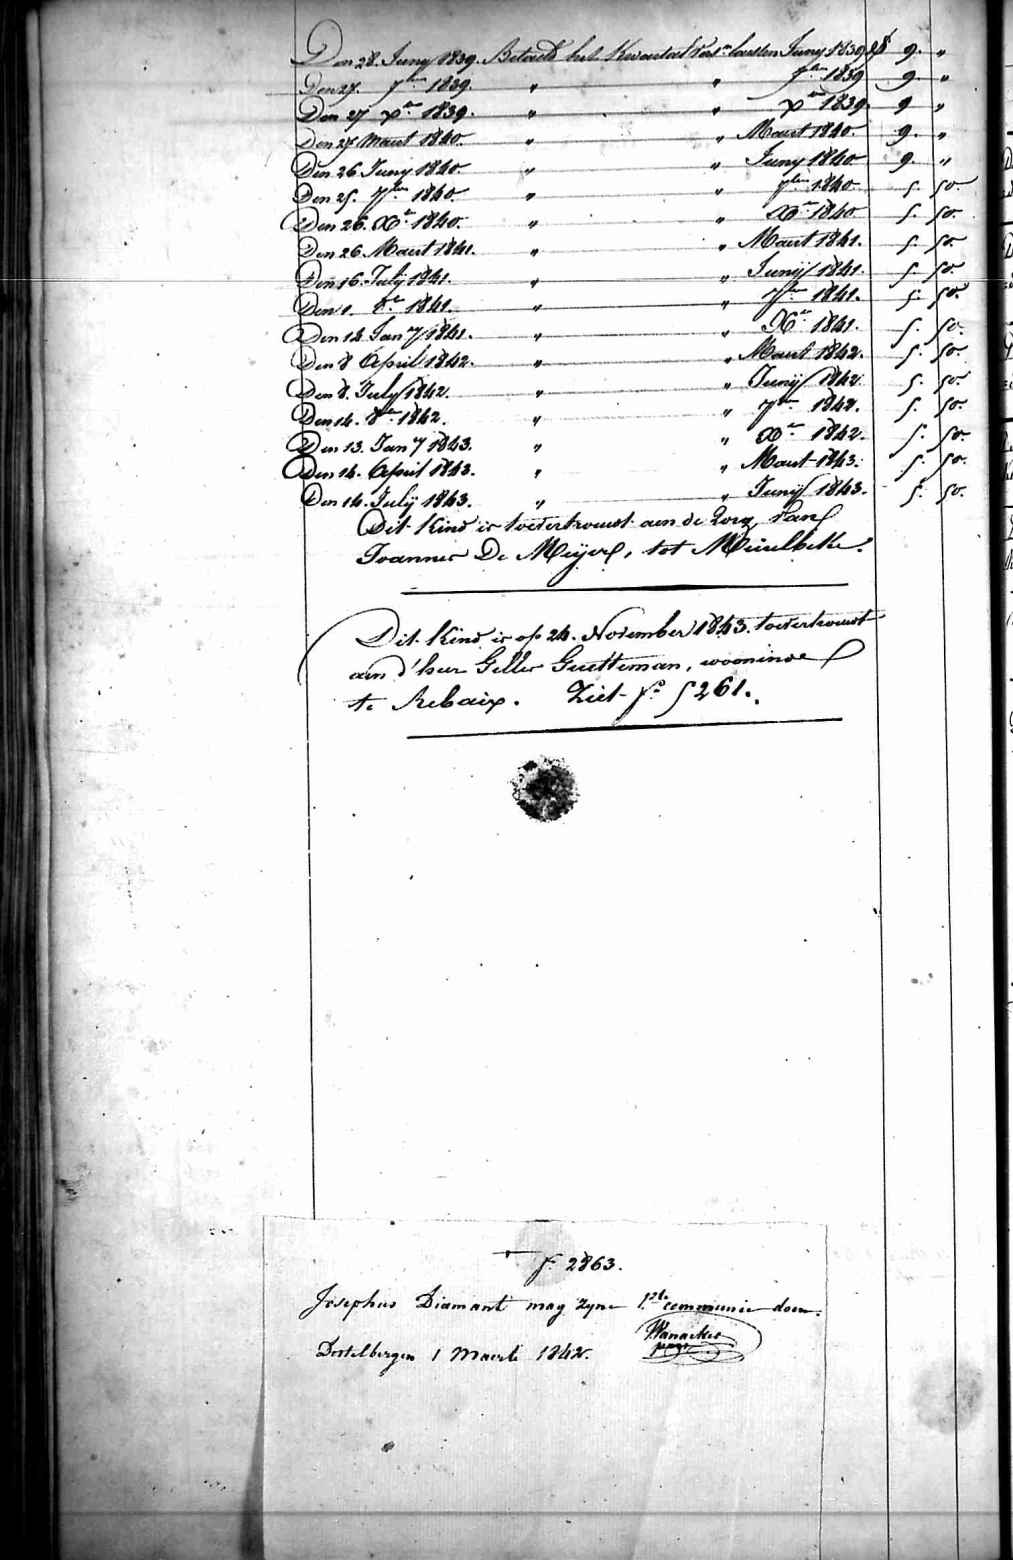 Den 28. Juny 1839. Betaeld het Kwartael laetsten Juny 1839 9. "
Den 27. 7ber 1839. " " 7ber 1839 9 "
Den 27 Xer 1839. " " Xer 1839. 9 "
Den 27 Maert 1840. " " Maert 1840. 9. "
Den 26 Juny 1840. " " Juny 1840 9. "
Den 25. 7ber 1840. " " 7ber 1840 5. 50.
Den 26. Xr 1840. " " Xr 1840 5. 50.
Den 26 Maert 1841. " " Maert 1841. 5. 50
Den 16. July 1841. " " Junij 1841. 5. 50
Den 1. 8er 1841. " " 7ber 1841. 5. 50.
Den 14 Jany 1841. " " Xr 1841. 5. 50.
Den 8 April 1842. " " Maert 1842. 5. 50.
Den 8. July 1842. " " Junij 1842 5. 50.
Den 14. 8er 1842. " " 7er 1842. 5. 50.
Den 13. Jany 1843. " " Xr 1842. 5. 50.
Den 14. April 1843. " " Maert 1843. 5. 50.
Den 14. Julij 1843. " " Junij 1843. 5. 50.
Dit kind is toevertrouwt aen de zorg van
Joannes De Meijer, tot Meirelbeke.
Dit kind is op 24. November 1843. toevertrouwt
aen d'heer Gille Guetteman, wooninde
te Rebaix. Ziet fo. 5261.
f. 2863.
Josephus Diamant mag zyne 1ste communie doen.
Destelbergen 1 Maerte 1842.